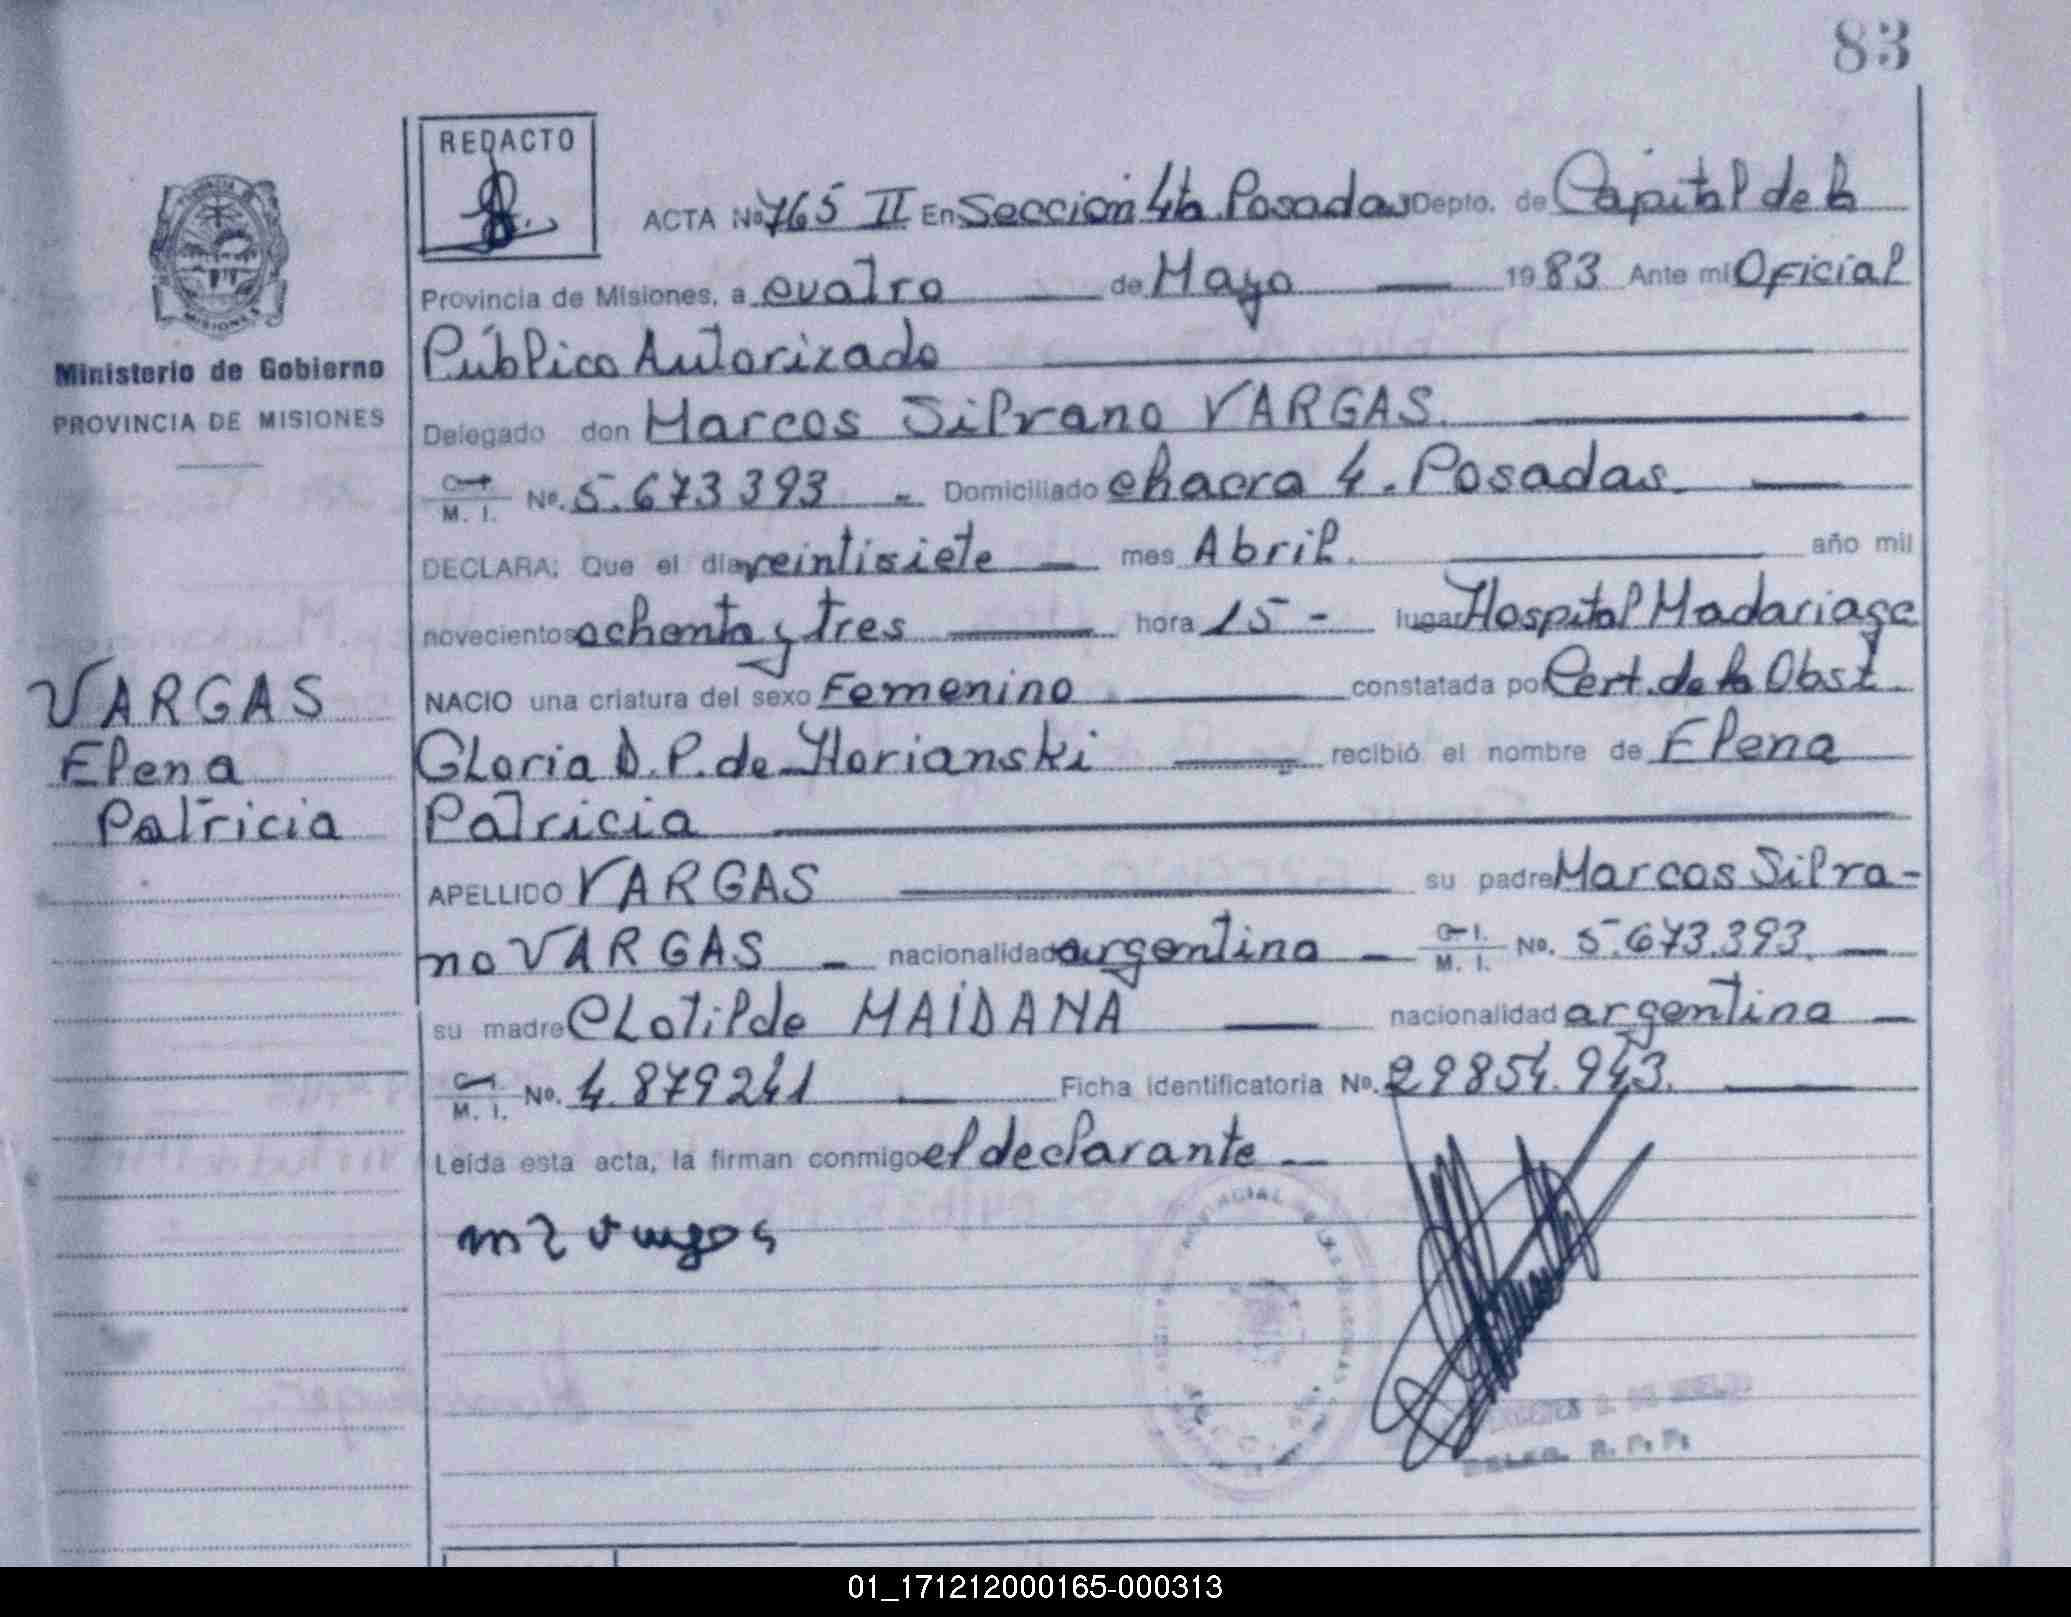 83
REDACTO
ACTA No 765 II En Sección 4ta Posadas Depto. de Capital de la
Provincia de Misiones, a cuatro de Mayo 1983 Ante mi Oficial
Público Autorizado
Delegado don Marcos Silvano VARGAS.
C. I.
M. I. No. 5.673393 - Domiciliado chacra 4. Posadas.
DECLARA: Que el día veintisiete mes Abril. año mil
novecientos ochenta y tres hora 15 - lugar Hospital Madariaga
NACIO una criatura del sexo Femenino constatada por Cert. de la Obst.
Gloria D. P. de Horianski recibió el nombre de Elena
Patricia
APELLIDO VARGAS su padre Marcos Silva-
no VARGAS - nacionalidad argentina - C. I.
M. I. No. 5.673.393.
su madre Clotilde MAIDANA nacionalidad argentina
C. I.
M. I. No. 4.879241 Ficha identificatoria No. 29854.943.
Leída esta acta, la firman conmigo el declarante
Ministerio de Gobierno
PROVINCIA DE MISIONES
VARGAS
Elena
Patricia
MISIONES
01_171212000165-000313